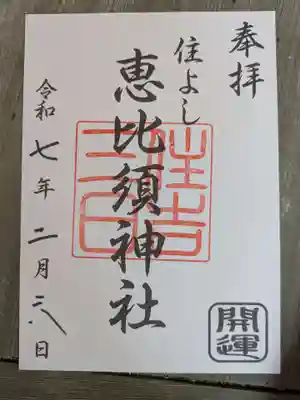 奉拝
住よし
恵比須神社
令和七年二月六日
開運